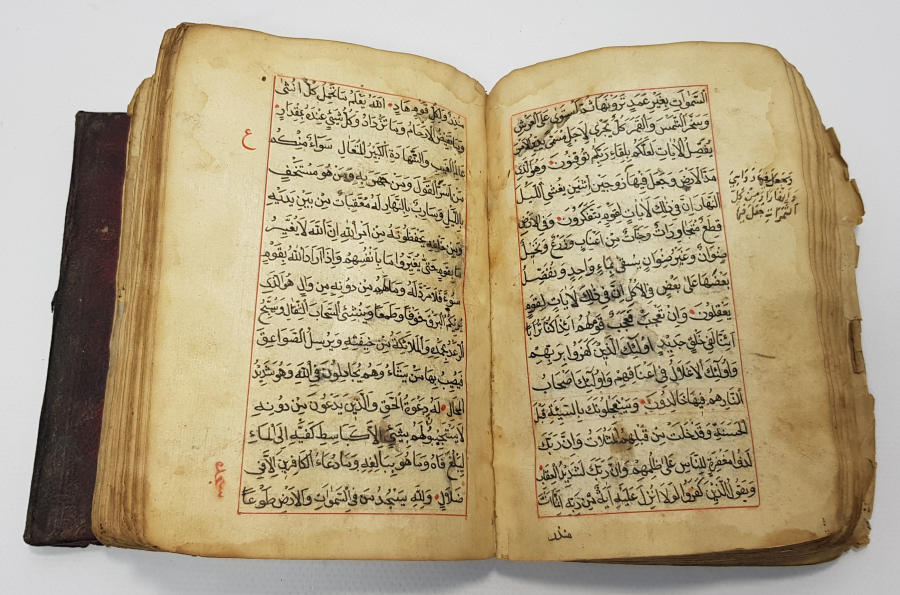 السموات بغير عمد ترونها ثم استوى على العرش
وسخر الشمس والقمر كل يجري لاجل مسمى يدبر الامر
يفصل الايات لعلكم بلقاء ربكم توقنون وهو الذي
مد الارض وجعل فيها زوجين اثنين يغشي الليل
النهار ان في ذلك لايات لقوم يتفكرون وفي الارض
قطع متجاورات وجنات من اعناب وزرع ونخيل
صنوان وغير صنوان يسقى بماء واحد ونفضل
بعضها على بعض في الاكل ان في ذلك لايات لقوم
يعقلون وان تعجب فعجب قولهم ائذا كنا ترابا
ائنا لفي خلق جديد اولئك الذين كفروا بربهم
واولئك الاغلال في اعناقهم واولئك اصحاب
النار هم فيها خالدون ويستعجلونك بالسيئة قبل
الحسنة وقد خلت من قبلهم المثلات وان ربك
لذو مغفرة للناس على ظلمهم وان ربك لشديد العقاب
ويقول الذين كفروا لولا انزل عليه اية من ربه انما انت
منذر
وجعل فيها رواسي
وانهارا ومن كل
الثمرات جعل فيها
منذر ولكل قوم هاد الله يعلم ما تحمل كل انثى
وما تغيض الارحام وما تزداد وكل شيء عنده بمقدار
ع
عالم الغيب والشهادة الكبير المتعال سواء منكم
من اسر القول ومن جهر به ومن هو مستخف
بالليل وسارب بالنهار له معقبات من بين يديه
ومن خلفه يحفظونه من امر الله ان الله لا يغير
ما بقوم حتى يغيروا ما بانفسهم واذا اراد الله بقوم
سوءا فلا مرد له وما لهم من دونه من وال هو الذي
يريكم البرق خوفا وطمعا وينشئ السحاب الثقال ويسبح
الرعد بحمده والملائكة من خيفته ويرسل الصواعق
فيصيب بها من يشاء وهم يجادلون في الله وهو شديد
المحال له دعوة الحق والذين يدعون من دونه
لا يستجيبون لهم بشيء الا كباسط كفيه الى الماء
ليبلغ فاه وما هو ببالغه وما دعاء الكافرين الا في
ضلال ولله يسجد من في السموات والارض طوعا
سجده